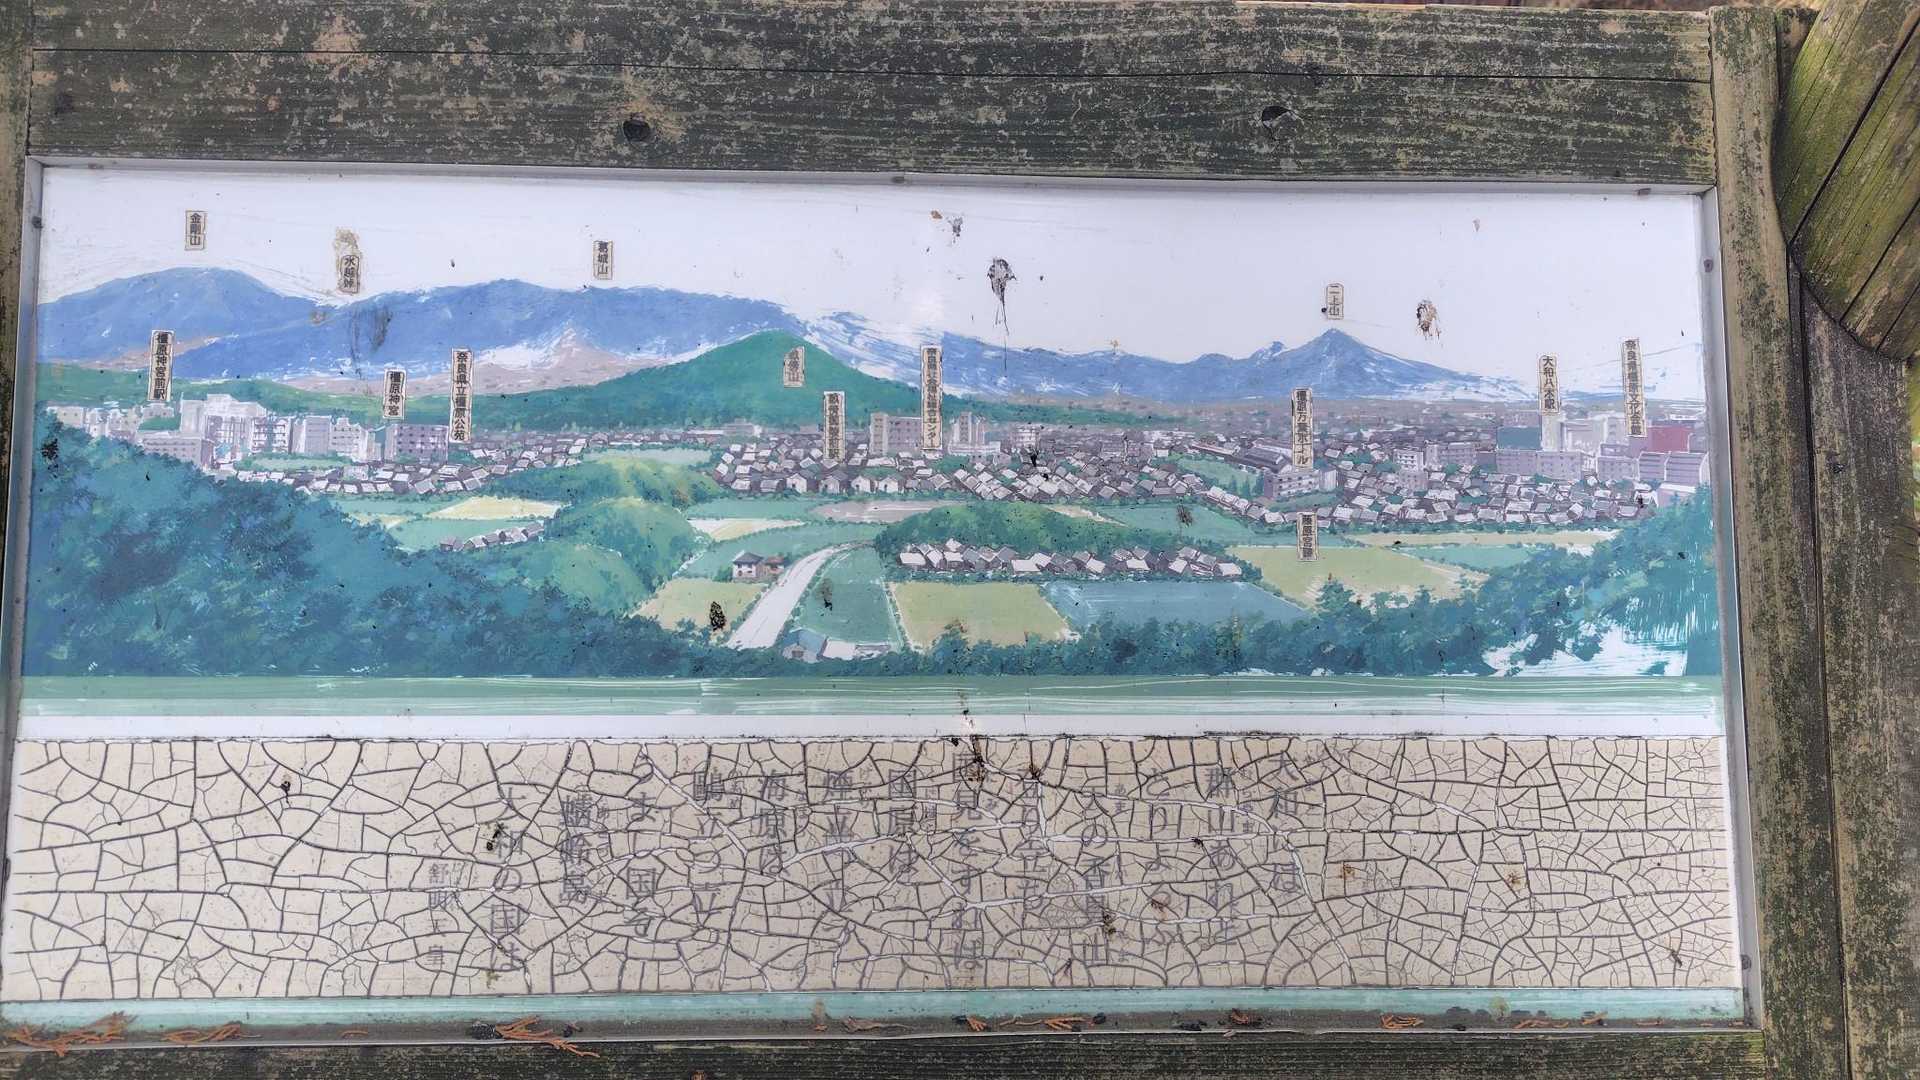 金剛山
水越峠
葛城山
二上山
橿原神宮前駅
橿原神宮
奈良県立橿原公苑
畝傍山
畝傍御陵前駅
橿原万葉ホール
大和八木駅
奈良県橿原文化会館
藤原宮跡
大和は
群山あれど
とりよろふ
天の香具山
登り立ち
国見をすれば
国原は
煙立つ立つ
海原は
鷗立つ立つ
うまし国そ
蜻蛉島
大和の国は
舒明天皇